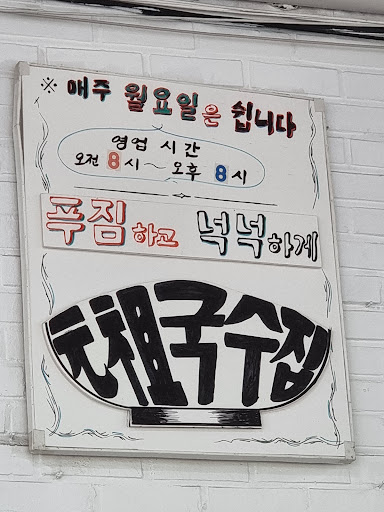 ※ 매주 월요일은 쉽니다
영업 시간
오전 8시~오후 8시
푸짐하고 넉넉하게
元祖국수집